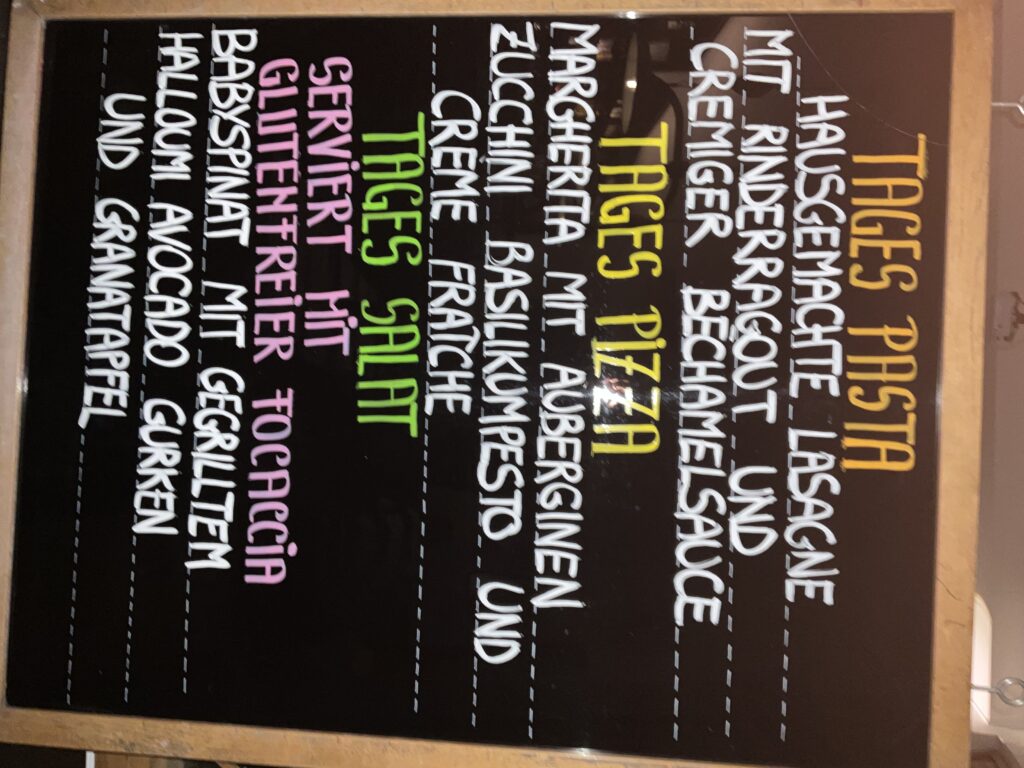 TAGES PASTA
HAUSGEMACHTE LASAGNE
MIT RINDERRAGOUT UND
CREMIGER BECHAMELSAUCE
TAGES PIZZA
MARGHERITA MIT AUBERGINEN
ZUCCHINI BASILIKUMPESTO UND
CREME FRAICHE
TAGES SALAT
SERVIERT MIT
GLUTENFREIER FOCACCIA
BABYSPINAT MIT GEGRILLTEM
HALLOUMI AVOCADO GURKEN
UND GRANATAPFEL